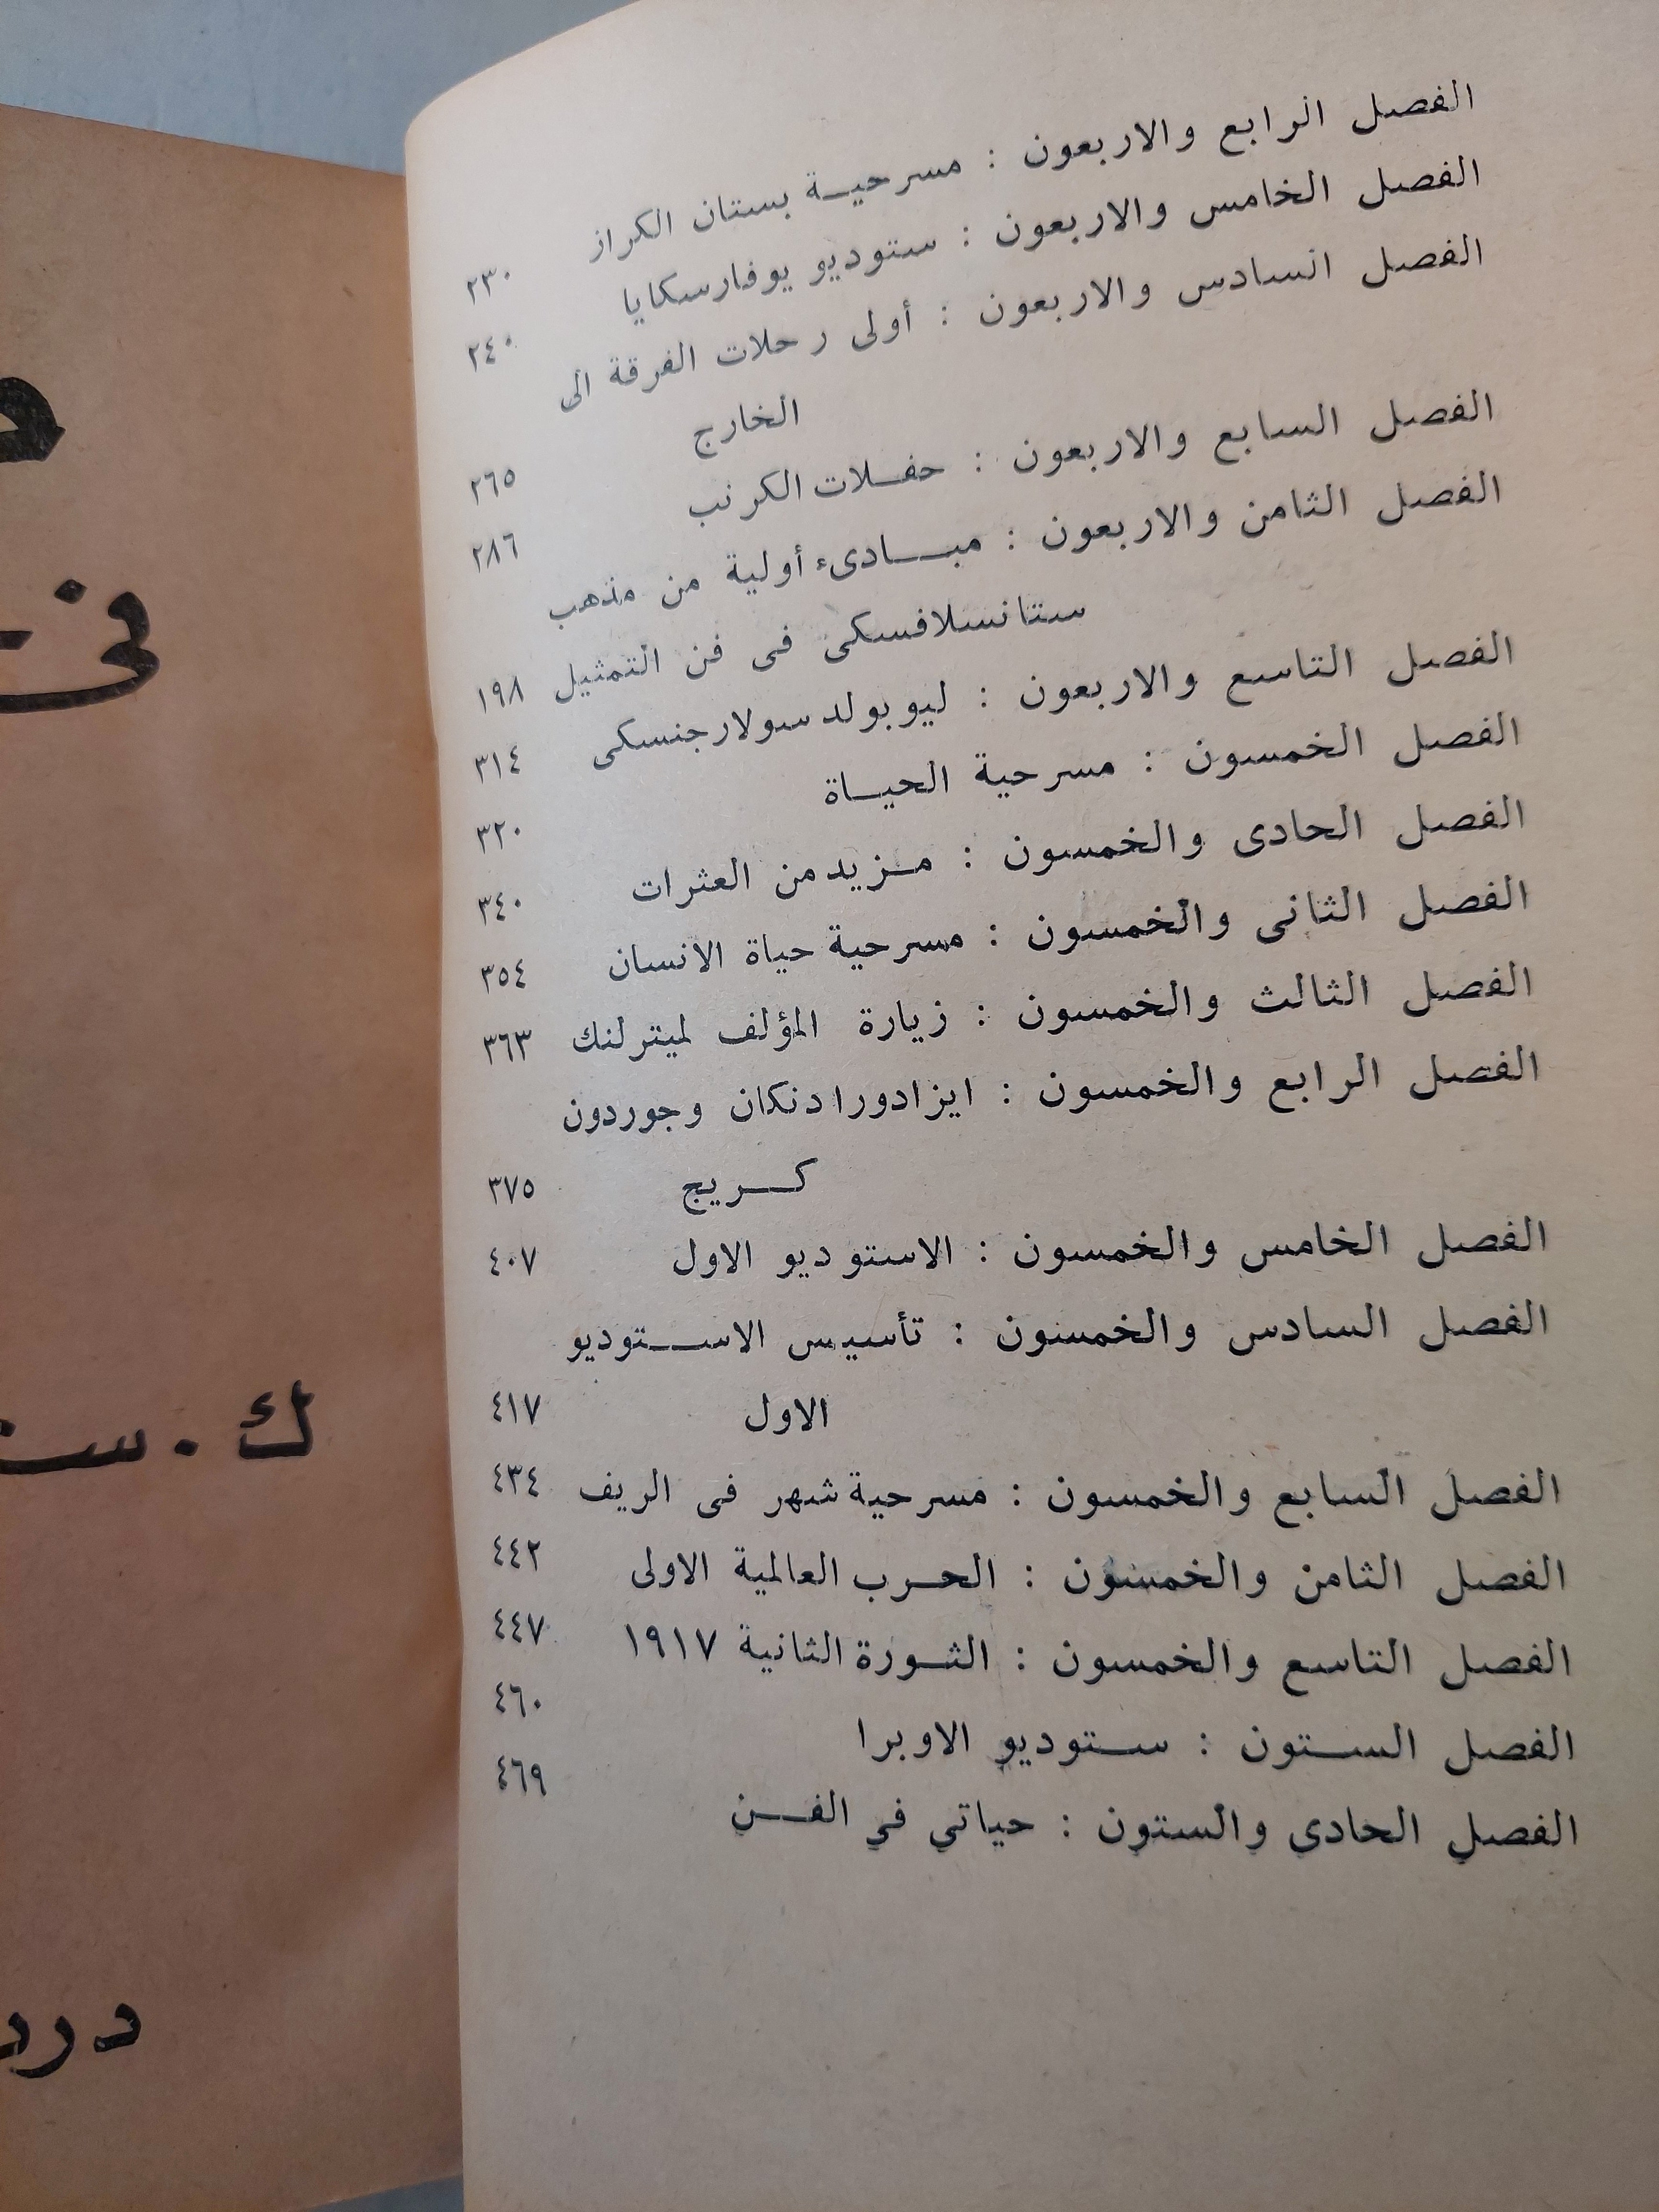 الفصل الرابع والاربعون : مسرحيـة بستان الكراز ٢٣٠
الفصل الخامس والاربعون : ستوديو يوفارسكايا ٢٤٠
الفصل السادس والاربعون : أولى رحلات الفرقة الى
الخارج ٢٦٥
الفصل السابع والاربعون : حفـلات الكرنب ٢٨٦
الفصل الثامن والاربعون : مبـادىء أولية من مذهب
ستانسلافسكى فى فن التمثيل ١٩٨
الفصل التاسع والاربعون : ليوبولد سولارجنسكى ٣١٤
الفصل الخمسون : مسرحية الحيـاة ٣٢٠
الفصل الحادى والخمسون : مـزيد من العثرات ٣٤٠
الفصل الثانى والخمسون : مسرحية حياة الانسان ٣٥٤
الفصل الثالث والخمسون : زيارة المؤلف لميترلنك ٣٦٣
الفصل الرابع والخمسون : ايزادورا دنكان وجوردون
كـريج ٣٧٥
الفصل الخامس والخمسون : الاستوديو الاول ٤٠٧
الفصل السادس والخمسون : تأسيس الاسـتوديو
الاول ٤١٧
الفصل السابع والخمسون : مسرحية شهر فى الريف ٤٣٤
الفصل الثامن والخمسون : الحـرب العالمية الاولى ٤٤٢
الفصل التاسع والخمسون : الثـورة الثانية ١٩١٧ ٤٤٧
الفصل السـتون : سـتوديو الاوبرا ٤٦٠
الفصل الحادى والستون : حياتي في الفـن ٤٦٩
فى
ك . ست